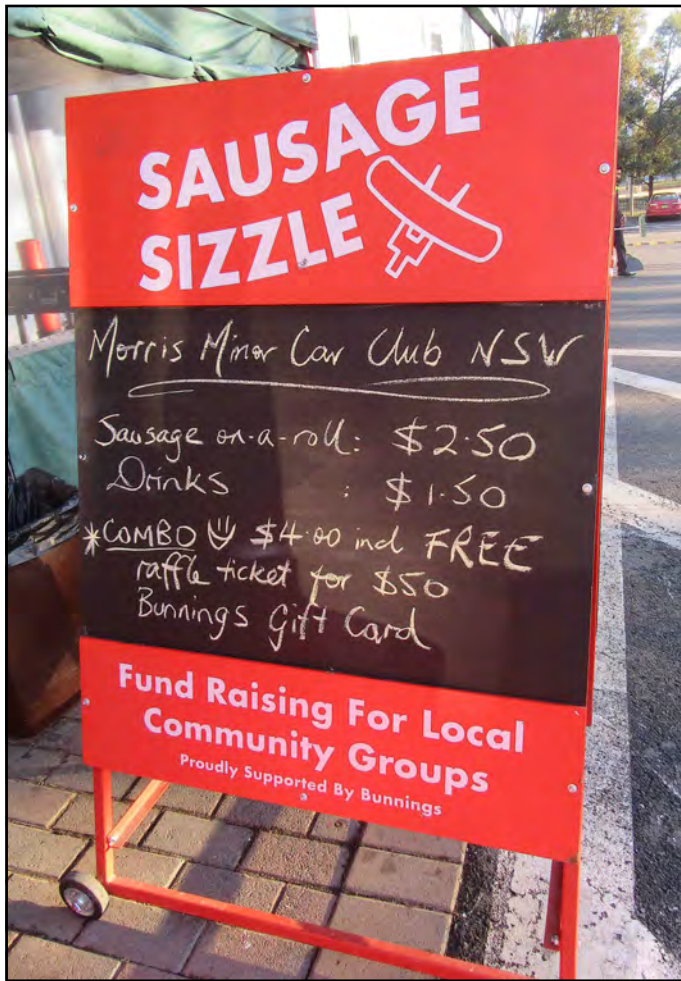 SAUSAGE
SIZZLE
Morris Minor Car Club NSW
Sausage on-a-roll: $2.50
Drinks : $1.50
*COMBO $4.00 incl FREE
raffle ticket for $50
Bunnings Gift Card
Fund Raising For Local
Community Groups
Proudly Supported By Bunnings